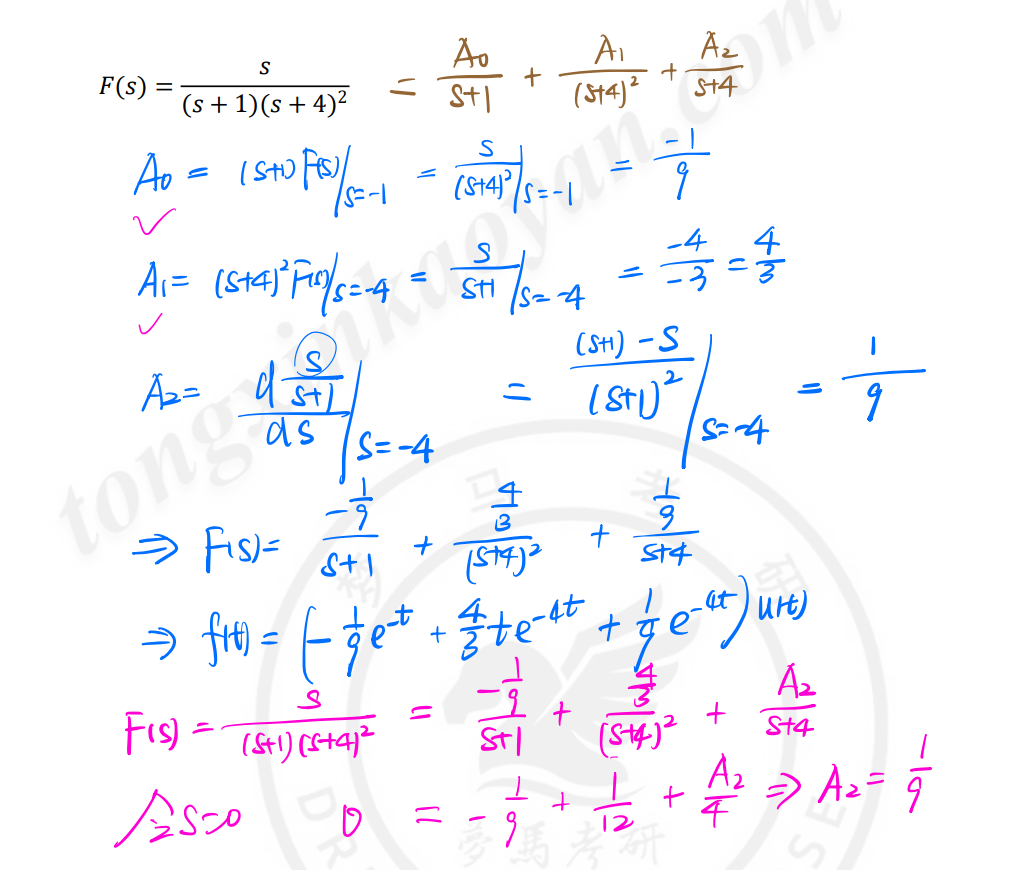 F(s) = s/((s + 1)(s + 4)²) = A₀/(s+1) + A₁/(s+4)² + A₂/(s+4)
A₀ = (s+1) F(s)|s=-1 = s/(s+4)²|s=-1 = -1/9
A₁ = (s+4)² F(s)|s=-4 = s/(s+1)|s=-4 = -4/-3 = 4/3
A₂ = d(s/(s+1))/ds|s=-4 = ((s+1) - s)/(s+1)²|s=-4 = 1/9
⇒ F(s) = (-1/9)/(s+1) + (4/3)/(s+4)² + (1/9)/(s+4)
⇒ f(t) = (-1/9 e^{-t} + 4/3 t e^{-4t} + 1/9 e^{-4t}) u(t)
F(s) = s/((s+1)(s+4)²) = (-1/9)/(s+1) + (4/3)/(s+4)² + A₂/(s+4)
令 s=0 0 = -1/9 + 1/12 + A₂/4 ⇒ A₂ = 1/9
tongxinkaoyan.com
夢馬考研